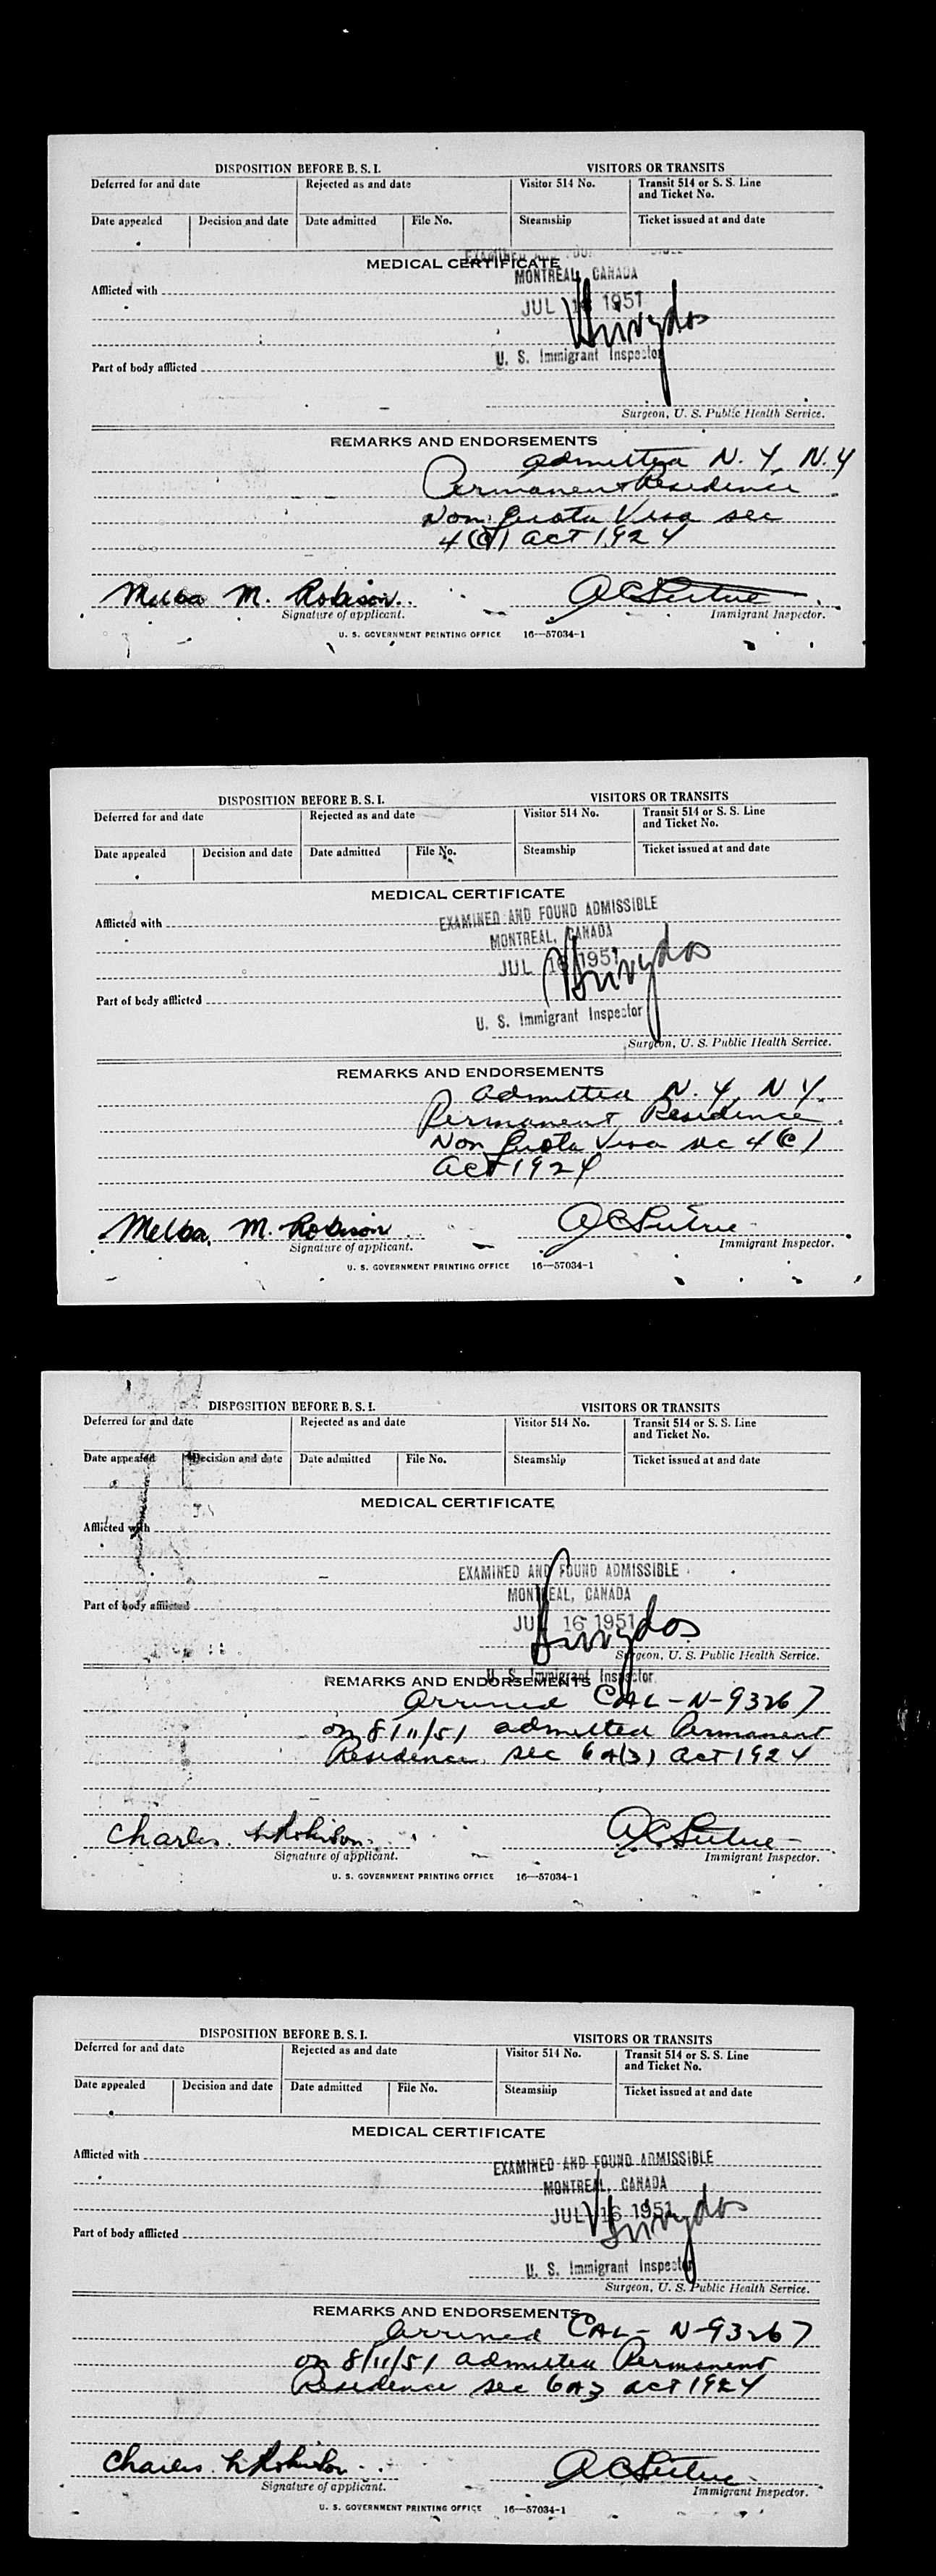 DISPOSITION BEFORE B. S. I. VISITORS OR TRANSITS
Deferred for and date Rejected as and date Visitor 514 No. Transit 514 or S. S. Line and Ticket No.
Date appealed Decision and date Date admitted File No. Steamship Ticket issued at and date
MEDICAL CERTIFICATE
MONTREAL, CANADA
Afflicted with
JUL 1951
U. S. Immigrant Inspector
Part of body afflicted
Surgeon, U. S. Public Health Service.
REMARKS AND ENDORSEMENTS
admitted N. Y. N. Y
Permanent Residence
Non Quota Visa sec
4(c) act 1924
Melba M. Robison
Signature of applicant. Immigrant Inspector.
U. S. GOVERNMENT PRINTING OFFICE 16—57034-1
DISPOSITION BEFORE B. S. I. VISITORS OR TRANSITS
Deferred for and date Rejected as and date Visitor 514 No. Transit 514 or S. S. Line and Ticket No.
Date appealed Decision and date Date admitted File No. Steamship Ticket issued at and date
MEDICAL CERTIFICATE
EXAMINED AND FOUND ADMISSIBLE
Afflicted with
MONTREAL, CANADA
JUL 16 1951
Part of body afflicted
U. S. Immigrant Inspector
Surgeon, U. S. Public Health Service.
REMARKS AND ENDORSEMENTS
admitted N. Y. N Y.
Permanent Residence
Non Quota Visa sec 4(c)
act 1924
Melba. M. Robison
Signature of applicant. Immigrant Inspector.
U. S. GOVERNMENT PRINTING OFFICE 16—57034-1
DISPOSITION BEFORE B. S. I. VISITORS OR TRANSITS
Deferred for and date Rejected as and date Visitor 514 No. Transit 514 or S. S. Line and Ticket No.
Date appealed Decision and date Date admitted File No. Steamship Ticket issued at and date
MEDICAL CERTIFICATE
Afflicted with
EXAMINED AND FOUND ADMISSIBLE
MONTREAL, CANADA
Part of body afflicted
JUL 16 1951
Surgeon, U. S. Public Health Service.
U. S. Immigrant Inspector
REMARKS AND ENDORSEMENTS
arrived CAL-N-93267
on 8/11/51 admitted Permanent
Residence sec 6A(3) act 1924
Charles
Signature of applicant. Immigrant Inspector.
U. S. GOVERNMENT PRINTING OFFICE 16—57034-1
DISPOSITION BEFORE B. S. I. VISITORS OR TRANSITS
Deferred for and date Rejected as and date Visitor 514 No. Transit 514 or S. S. Line and Ticket No.
Date appealed Decision and date Date admitted File No. Steamship Ticket issued at and date
MEDICAL CERTIFICATE
Afflicted with
EXAMINED AND FOUND ADMISSIBLE
MONTREAL, CANADA
JUL 16 1951
Part of body afflicted
U. S. Immigrant Inspector
Surgeon, U. S. Public Health Service.
REMARKS AND ENDORSEMENTS
arrived CAL- N-93267
on 8/11/51 admitted Permanent
Residence sec 6A3 act 1924
Charles
Signature of applicant. Immigrant Inspector.
U. S. GOVERNMENT PRINTING OFFICE 16—57034-1